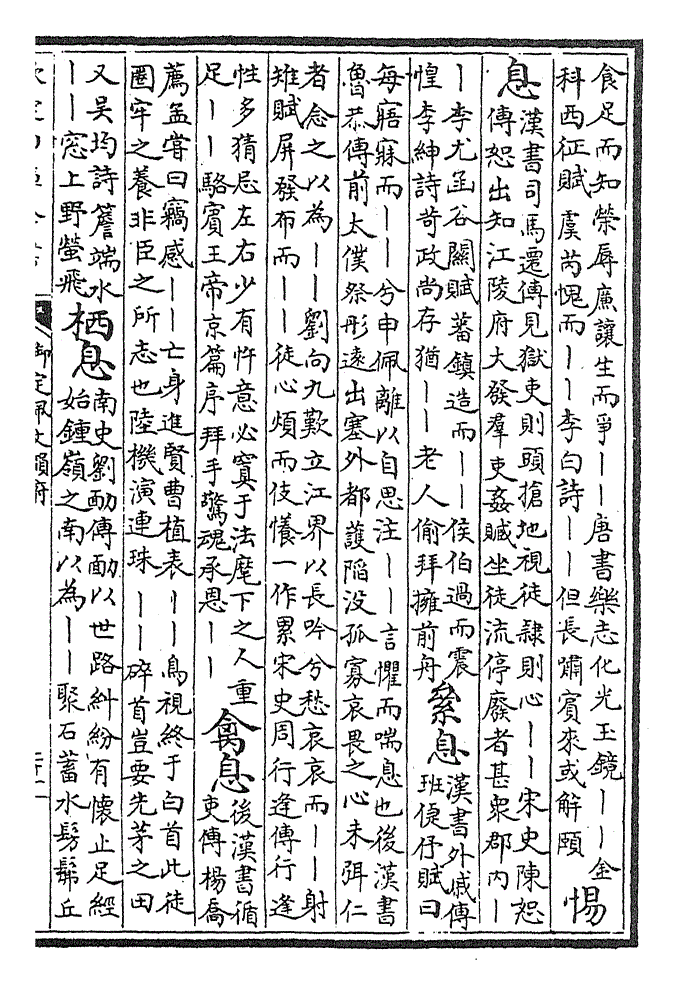 食足而知榮辱廉讓生而爭丨丨唐書樂志化光玉鏡丨丨金
科西征賦虞芮愧而丨丨李白詩丨丨但長嘯賓來或解頤惕
息漢書司馬遷傳見獄吏則頭搶地視徒隷則心丨丨宋史陳恕
傳恕出知江陵府大發羣吏姦贓坐徒流停廢者甚衆郡內丨
丨李尤函谷關賦蕃鎮造而丨丨侯伯過而震
惶李紳詩苛政尚存猶丨丨老人偷拜擁前舟絫息漢書外戚傳
班倢伃賦曰
每寤寐而丨丨兮申佩離以自思注丨丨言懼而喘息也後漢書
魯恭傳前太僕祭肜遠出塞外都護陷没孤寡哀畏之心未弭仁
者念之以為丨丨劉向九歎立江界以長吟兮愁哀哀而丨丨射
雉賦屏發布而丨丨徒心煩而伎懩一作累宋史周行逢傳行逢
性多猜忌左右少有忤意必寘于法麾下之人重
足丨丨駱賓王帝京篇序拜手驚魂承恩丨丨禽息後漢書循
吏傳楊喬
薦孟嘗曰竊感丨丨亡身進賢曹植表丨丨鳥視終于白首此徒
圈牢之養非臣之所志也陸機演連珠丨丨碎首豈要先茅之田
又吳均詩簷端水
丨丨窓上野螢飛栖息南史劉勔傳勔以世路糾紛有懷止足經
始鍾嶺之南以為丨丨聚石蓄水髣髴丘
御定佩文韻府